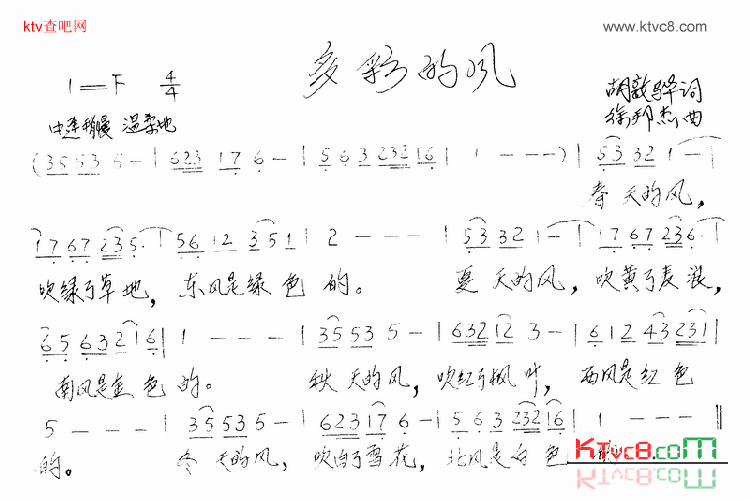 ktv查吧网
www.ktvc8.com
多彩的风
1=F 4/4
胡敦骅词
徐邦杰曲
中速稍慢 温柔地
(35 53 5 - | 623 17 6 - | 5 6 3 232 16 | 1 - - - ) | 53 32 1 - |
春天的风,
17 67 235 · | 56 12 351 | 2 - - - | 53 32 1 - | 17 67 235 · |
吹绿了草地, 东风是绿色的。 夏天的风, 吹黄了麦浪,
65 63 216 | 1 - - - | 35 53 5 - | 632 12 3 - | 61 2 43 231 |
南风是金色的。 秋天的风, 吹红了枫叶, 西风是红色
5 - - - | 35 53 5 - | 623 17 6 - | 5 6 3 232 16 | 1 - - - ‖
的。 冬天的风, 吹白了雪花, 北风是白色
KTVC8.COM